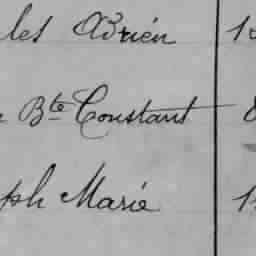 les Adrien
Bte Constant
ph Marie